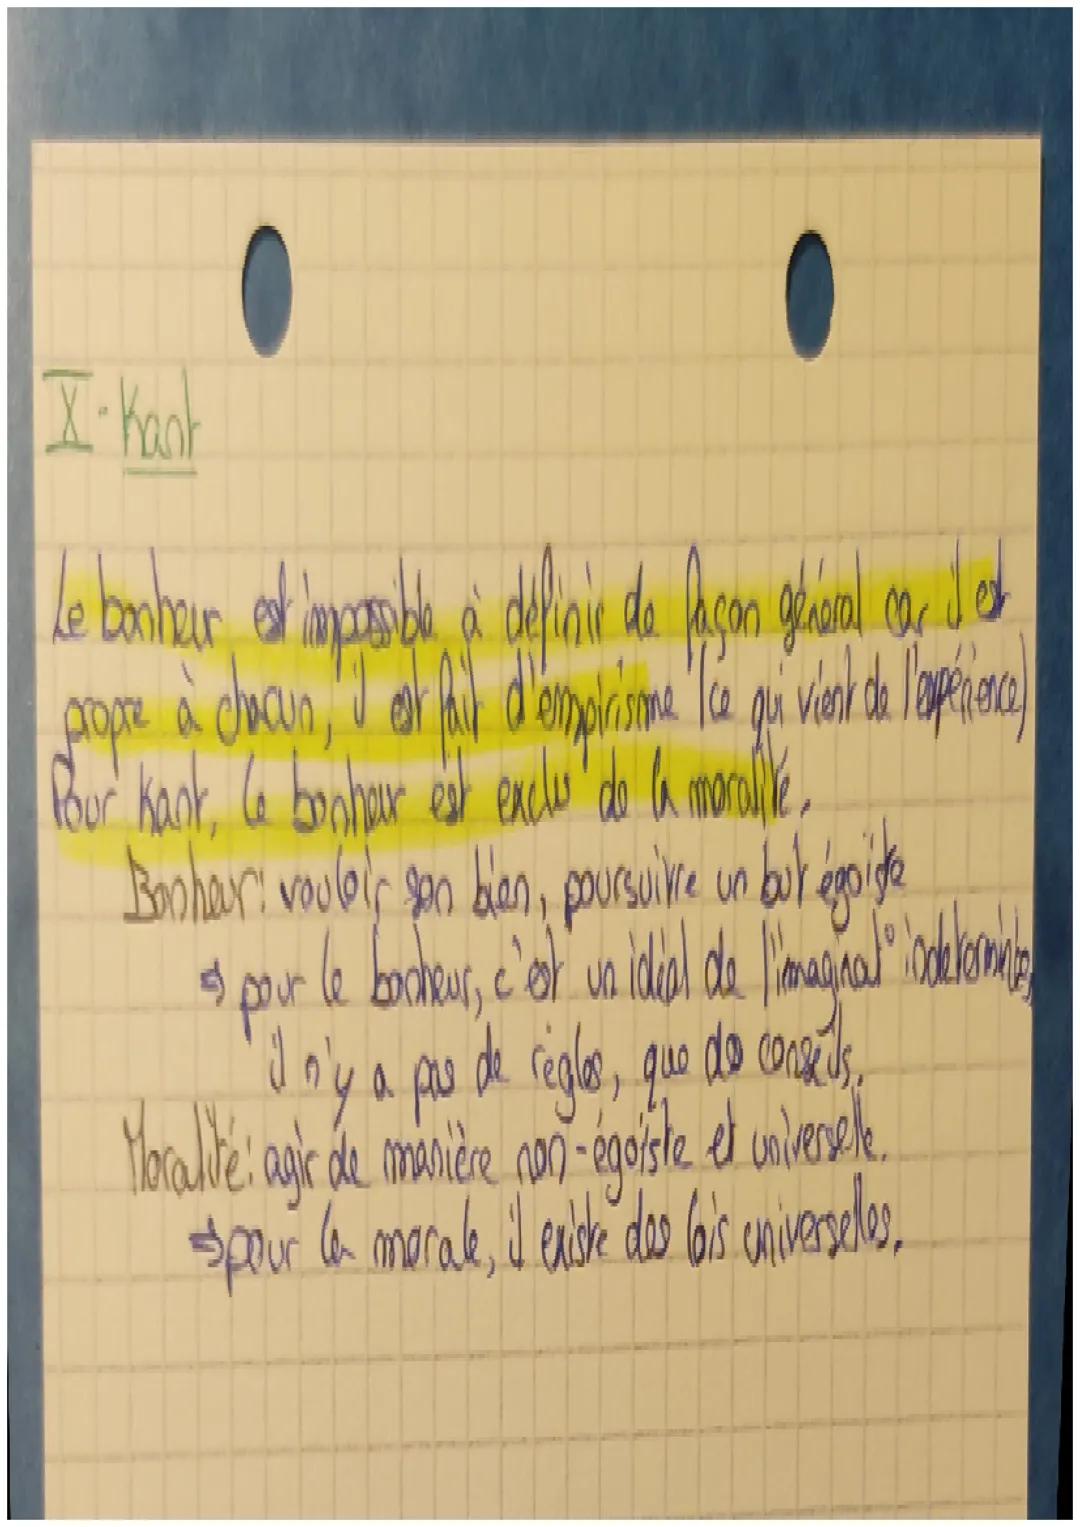 X. Kant
Le bonheur est impossible à définir de façon général car il est
propre à chacun, il est fait d'empirisme (ce qui vient de l'expérience)
Pour Kant, le bonheur est exclu de la moralité.
Bonheur: vouloir son bien, poursuivre un but égoïste
⇒ pour le bonheur, c'est un idéal de l'imaginat°
il n'y a pas de règles, que des conseils.
Moralité: agir de manière non-égoïste et universelle.
⇒ pour la morale, il existe des lois universelles.